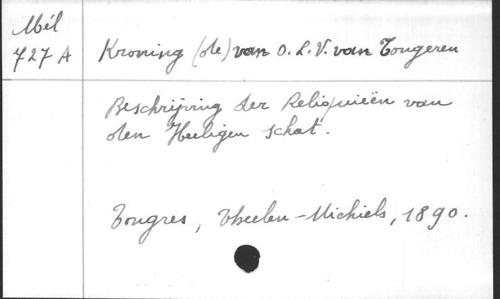 Mél
727 A
Kroning (de) van O. L. V. van Tongeren
Beschrijving der Reliquieën van
den Heiligen schat.
Tongres, Theelen-Michiels, 1890.